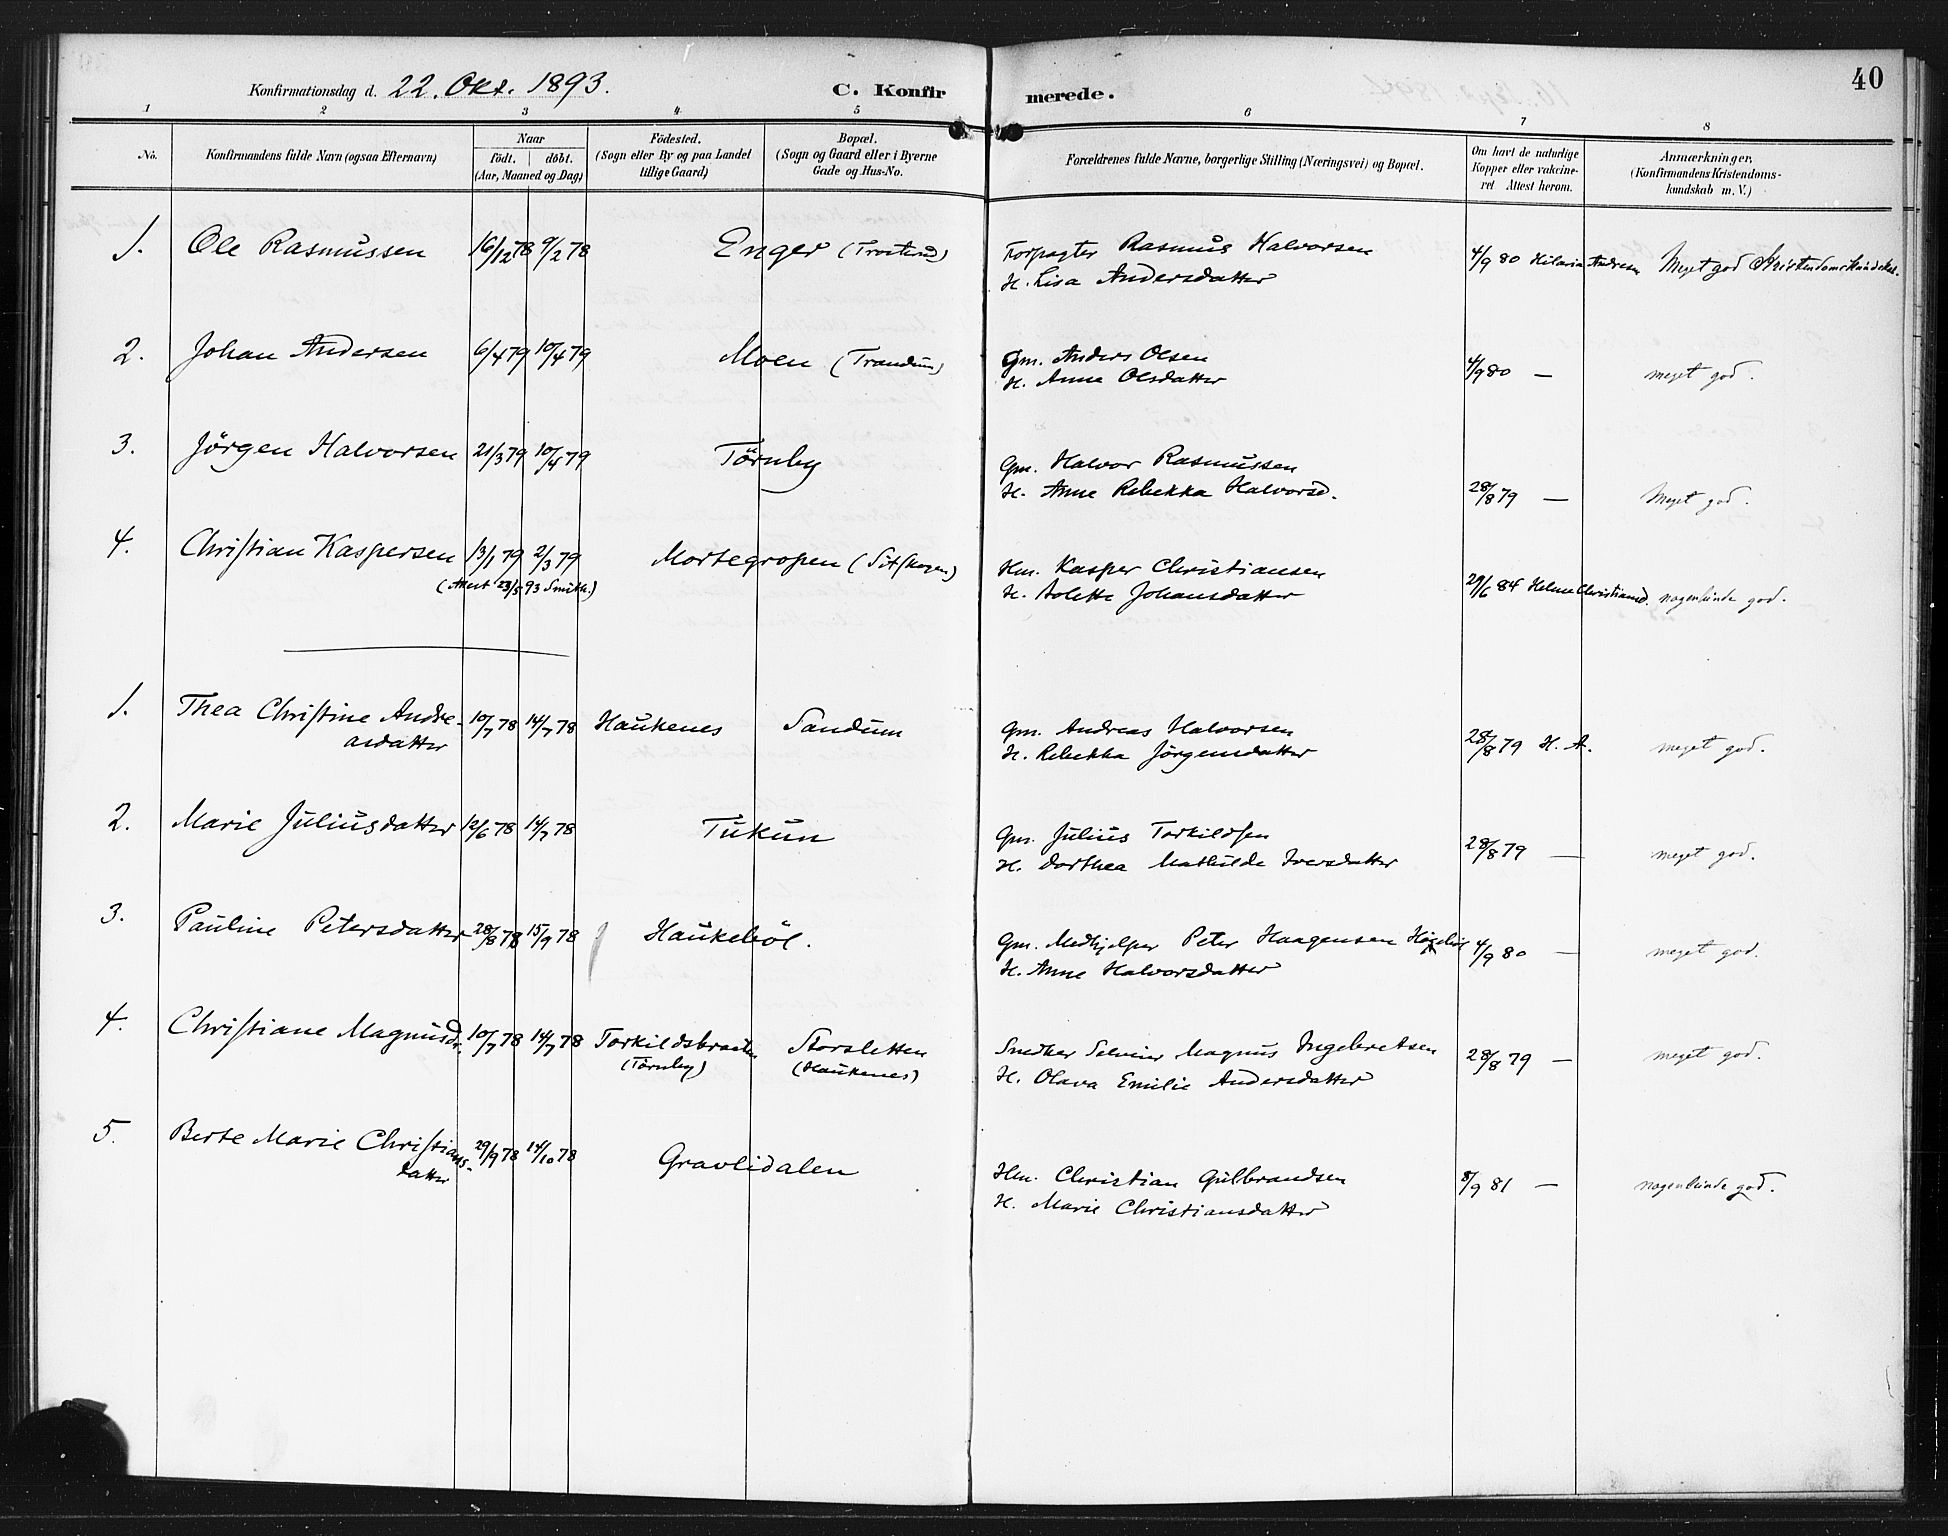 Konfirmationsdag d. 22. Okt. 1893.
C. Konfirmerede.
40
1 2 3 4 5 6 7 8
No.
Konfirmandens fulde Navn (ogsaa Efternavn)
Naar
født. | døbt.
(Aar, Maaned og Dag)
Födested.
(Sogn eller By og paa Landet
tillige Gaard)
Bopæl.
(Sogn og Gaard eller i Byerne
Gade og Hus-No.
Forældrenes fulde Navne, borgerlige Stilling (Næringsvei) og Bopæl.
Om havt de naturlige
Kopper eller vakcine-
ret Attest herom.
Anmærkninger,
(Konfirmandens Kristendoms-
kundskab m. V.)
1. Ole Rasmussen 16/12 78 9/2 78 Enger (Trostrud) Forpagter Rasmus Halvorsen 4/9 80 Hilaria Andresen Meget god Kristendomskundskab.
H. Lisa Andersdatter
2. Johan Andersen 6/4 79 10/4 79 Moen (Trandum) Gm. Anders Olsen 4/9 80 — meget god.
H. Anne Olsdatter
3. Jörgen Halvorsen 21/3 79 10/4 79 Törnby Gm. Halvor Rasmussen
H. Anne Rebekka Halvorsd. 28/8 79 — Meget god.
4. Christian Kaspersen 13/1 79 2/3 79 Mortegropen (Sitskogen) Hm. Kasper Christiansen
(Attest 23/5 93 Smith.) H. Bolette Johansdatter 29/6 84 Helene Christiansd. nogenlunde god.
1. Thea Christine Andre- 10/7 78 14/7 78 Haukenes Sandum Gm. Andreas Halvorsen
asdatter H. Rebekka Jörgensdatter 28/8 79 H. A. meget god.
2. Marie Juliusdatter 12/6 78 14/7 78 Tukun Gm. Julius Torkildsen
H. Dorthea Mathilde Iversdatter 28/8 79 — meget god.
3. Pauline Petersdatter 28/8 78 15/9 78 Haukeböl. Gm. Medhjelper Peter Haagensen 4/9 80 — meget god.
H. Anne Halvorsdatter
4. Christiane Magnusdr. 10/7 78 14/7 78 Torkildsbraaten Storsletten Snedker Magnus Ingebretsen 28/8 79 — meget god.
(Törnby) (Haukenes) H. Olava Emilie Andersdatter
5. Berte Marie Christians- 29/9 78 14/10 78 Gravlidalen Hm. Christian Gulbrandsen 8/9 81 — nogenlunde god.
datter H. Marie Christiansdatter